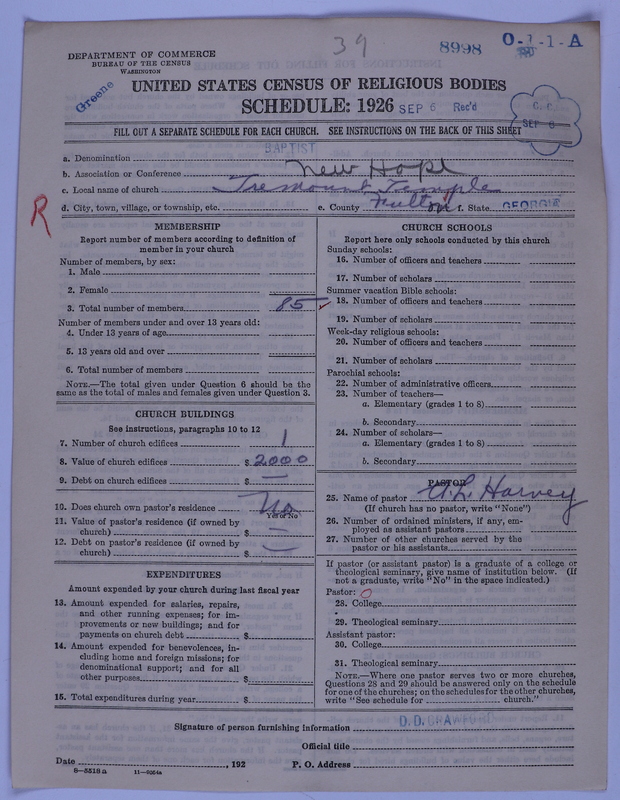 39
8998
O-1-1-A
DEPARTMENT OF COMMERCE
BUREAU OF THE CENSUS
WASHINGTON
Greene
UNITED STATES CENSUS OF RELIGIOUS BODIES
SCHEDULE: 1926 SEP 6 Rec'd
C. C.
SEP 6
FILL OUT A SEPARATE SCHEDULE FOR EACH CHURCH. SEE INSTRUCTIONS ON THE BACK OF THIS SHEET
a. Denomination BAPTIST
b. Association or Conference New Hope
c. Local name of church Tremount Temple
d. City, town, village, or township, etc. e. County Fulton f. State GEORGIA
R
MEMBERSHIP
Report number of members according to definition of
member in your church
Number of members, by sex:
1. Male
2. Female
3. Total number of members 85
Number of members under and over 13 years old:
4. Under 13 years of age
5. 13 years old and over
6. Total number of members
NOTE.—The total given under Question 6 should be
the same as the total of males and females given under Question 3.
CHURCH BUILDINGS
See instructions, paragraphs 10 to 12
7. Number of church edifices 1
8. Value of church edifices $ 2000
9. Debt on church edifices $ —
10. Does church own pastor's residence No
Yes or No
11. Value of pastor's residence (if owned by
church) $ —
12. Debt on pastor's residence (if owned by
church) $ —
EXPENDITURES
Amount expended by your church during last fiscal year
13. Amount expended for salaries, repairs,
and other running expenses; for im-
provements or new buildings; and for
payments on church debt $
14. Amount expended for benevolences, in-
cluding home and foreign missions; for
denominational support; and for all
other purposes $
15. Total expenditures during year $
CHURCH SCHOOLS
Report here only schools conducted by this church
Sunday schools:
16. Number of officers and teachers
17. Number of scholars
Summer vacation Bible schools:
18. Number of officers and teachers
19. Number of scholars
Week-day religious schools:
20. Number of officers and teachers
21. Number of scholars
Parochial schools:
22. Number of administrative officers
23. Number of teachers—
a. Elementary (grades 1 to 8)
b. Secondary
24. Number of scholars—
a. Elementary (grades 1 to 8)
b. Secondary
PASTOR
25. Name of pastor W. L. Harvey
(If church has no pastor, write "None")
26. Number of ordained ministers, if any, em-
ployed as assistant pastors
27. Number of other churches served by the
pastor or his assistants
If pastor (or assistant pastor) is a graduate of a college or
theological seminary, give name of institution below. (If
not a graduate, write "No" in the space indicated.)
Pastor: O
28. College
29. Theological seminary
Assistant pastor:
30. College
31. Theological seminary
NOTE.—Where one pastor serves two or more churches,
Questions 28 and 29 should be answered only on the schedule
for one of the churches; on the schedules for the other churches,
write "See schedule for church."
Signature of person furnishing information D. D. CRAWFORD
Official title
Date , 192 P. O. Address
8—5518a 11—9054a